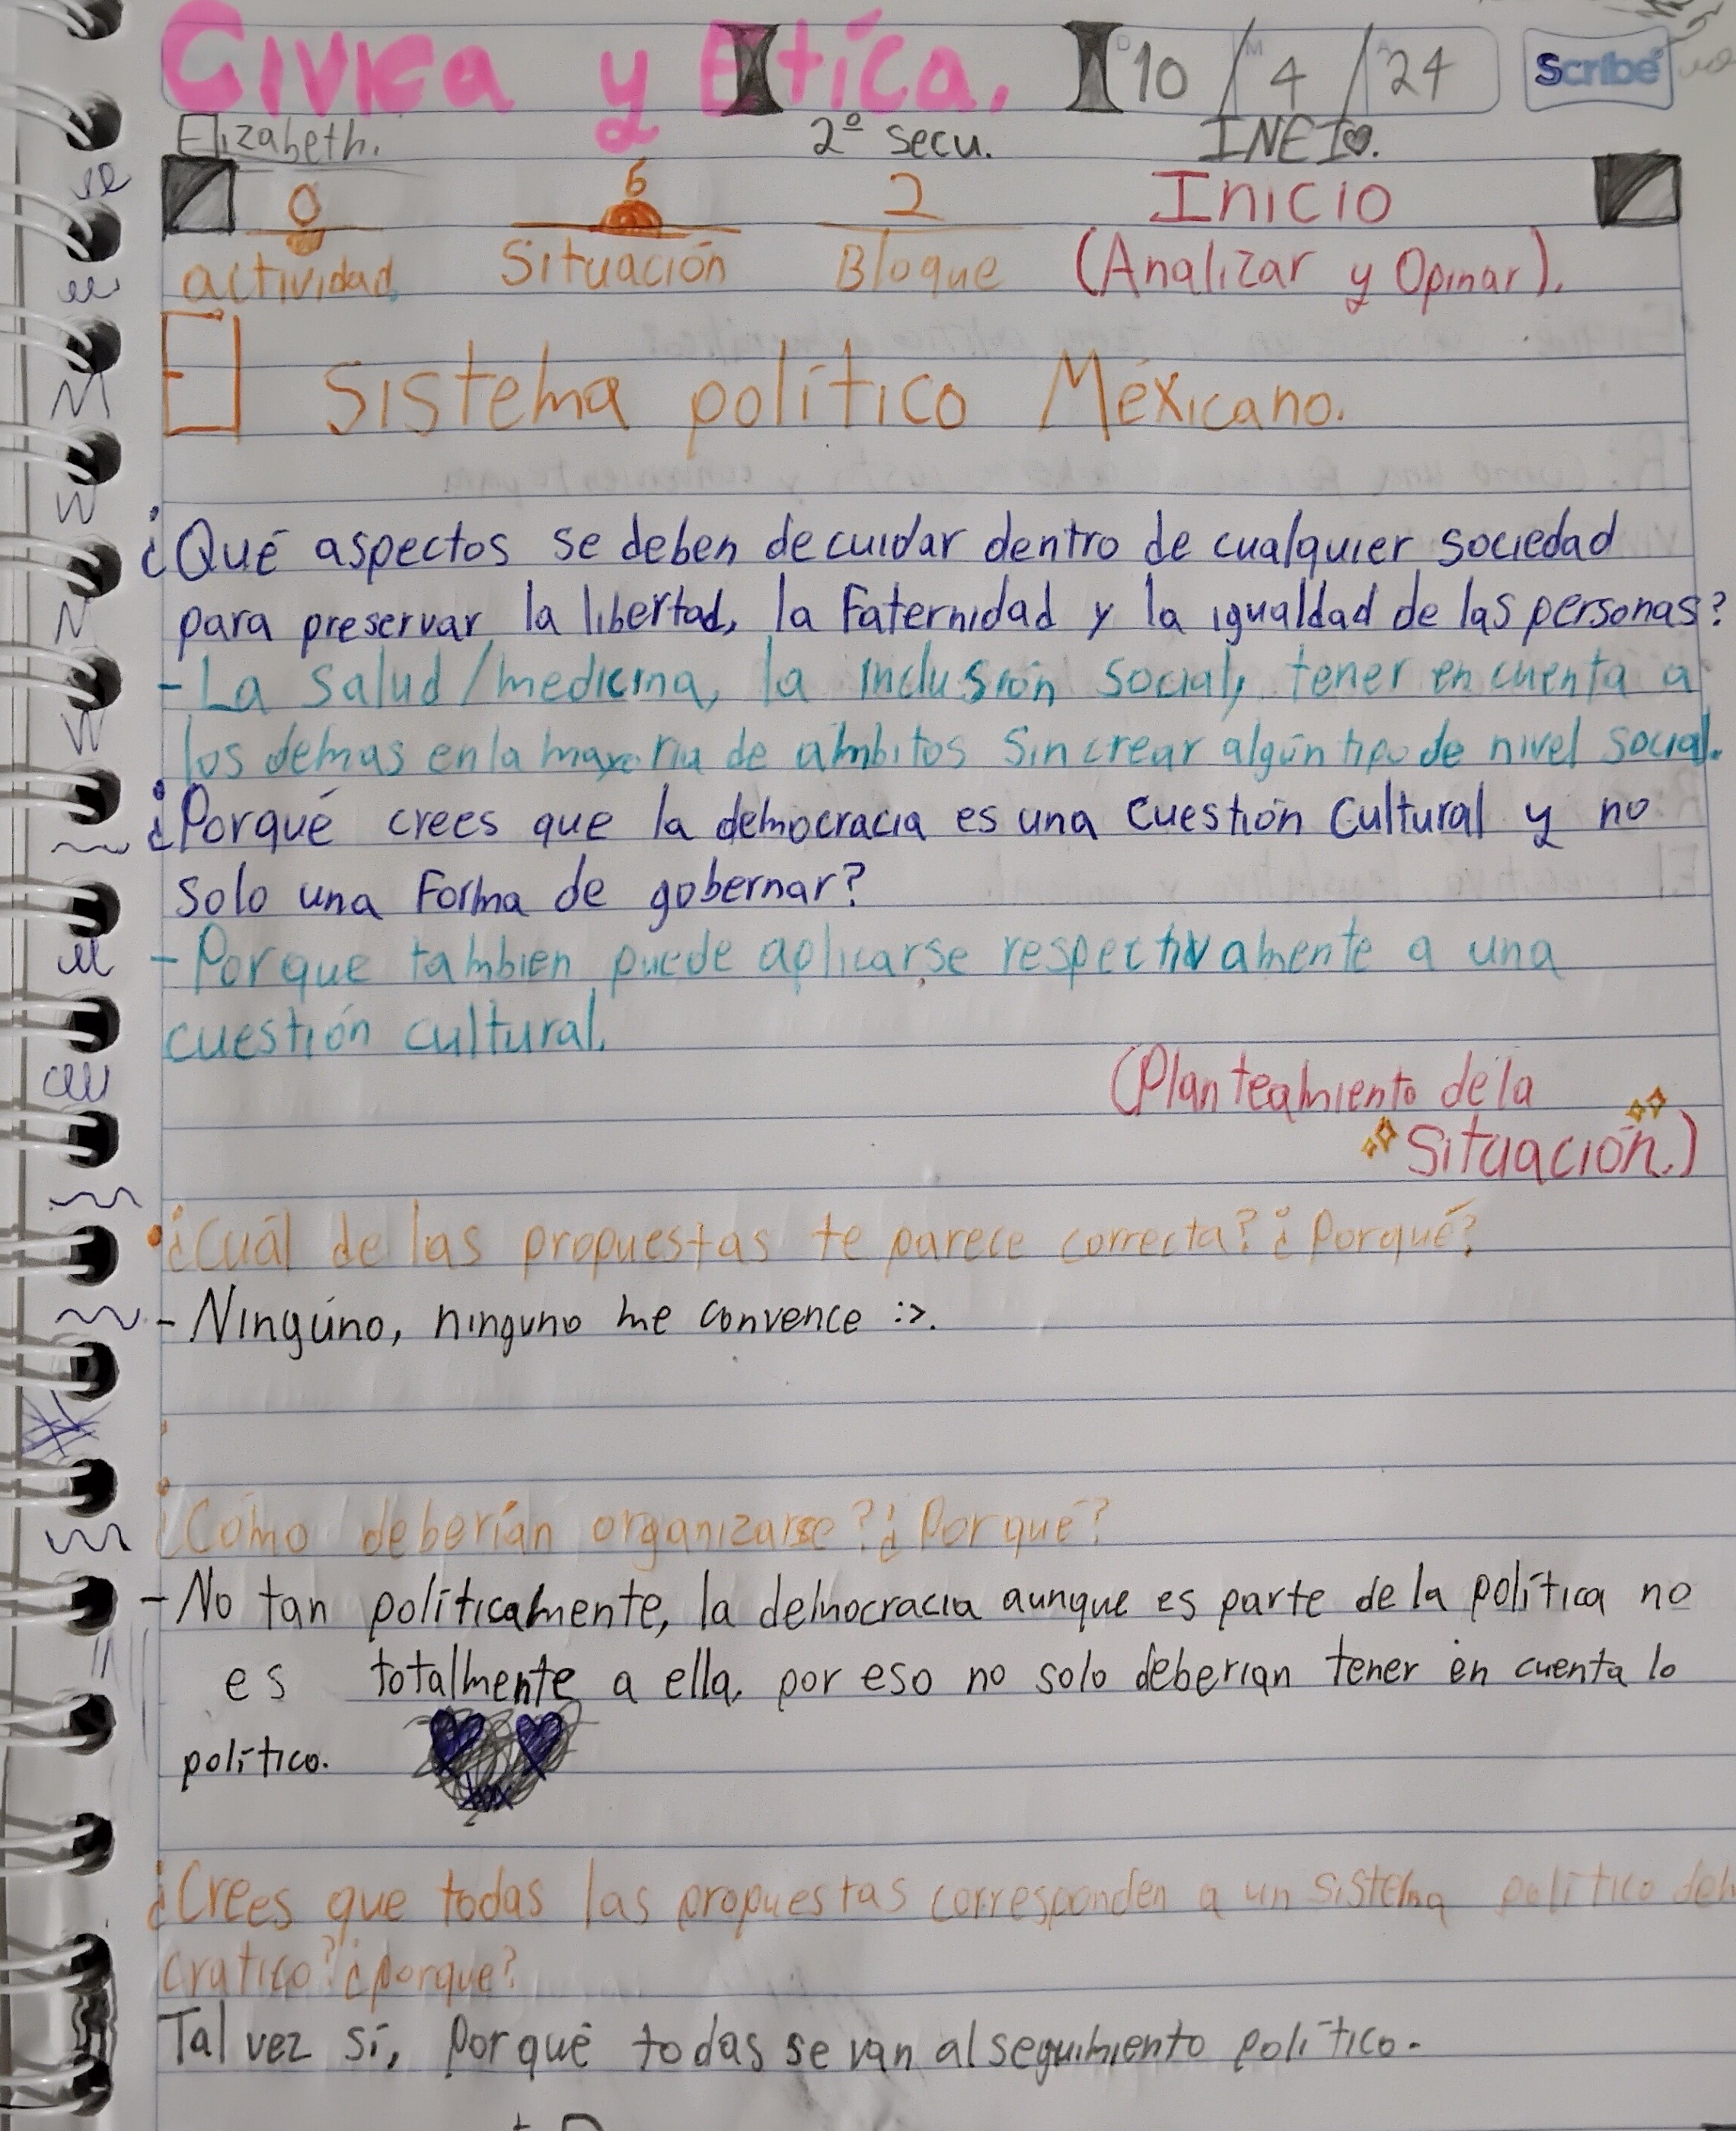 Civica y Etica. 10/4/24 Scribe
Elizabeth. 2º secu. INEI♡.
0 6 2 Inicio
actividad Situación Bloque (Analizar y Opinar).
El Sistema político Méxicano.
¿Qué aspectos se deben de cuidar dentro de cualquier sociedad
para preservar la libertad, la Faternidad y la igualdad de las personas?
-La Salud/medicina, la inclusión social, tener en cuenta a
los demas en la mayoria de ambitos sin crear algún tipo de nivel social.
¿Porqué crees que la democracia es una cuestión Cultural y no
solo una Forma de gobernar?
-Porque tambien puede aplicarse respectivamente a una
cuestión cultural.
(Planteamiento de la
Situación.)
¿Cuál de las propuestas te parece correcta? ¿Porqué?
-Ningúno, ninguno me convence :>.
¿Cómo deberían organizarse? ¿Porqué?
-No tan políticamente, la democracia aunque es parte de la política no
es totalmente a ella, por eso no solo deberian tener en cuenta lo
político.
¿Crees que todas las propuestas corresponden a un sistema político dem
cratico? ¿porque?
Tal vez sí, Porqué todas se van al seguimiento político.